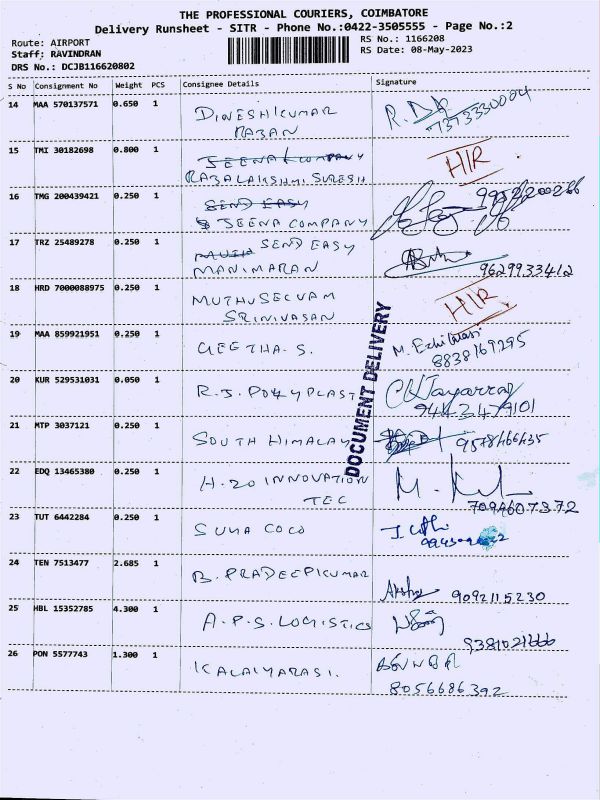 THE PROFESSIONAL COURIERS, COIMBATORE
Delivery Runsheet - SITR - Phone No.:0422-3505555 - Page No.:2
Route: AIRPORT
RS No.: 1166208
Staff: RAVINDRAN
RS Date: 08-May-2023
DRS No.: DCJB116620802
S No Consignment No Weight PCS Consignee Details Signature
14 MAA 570137571 0.650 1 DINESHKUMAR
RAJAN
7373330004
15 TMI 30182698 0.800 1 JEENA COMPANY HIR
RAJALAKSHMI SURESH
16 TMG 200439421 0.250 1 SEND EASY
JEENA COMPANY
17 TRZ 25489278 0.250 1 SEND EASY
MANIMARAN 9629933412
18 HRD 7000088975 0.250 1 MUTHUSELVAM HIR
SRINIVASAN
DOCUMENT DELIVERY
19 MAA 859921951 0.250 1 GEETHA.S. M. Ezhilarasi
8838169295
20 KUR 529531031 0.050 1 R.J. POLYPLAST
21 MTP 3037121 0.250 1 SOUTH HIMALAY 9578466435
22 EDQ 13465380 0.250 1 H.20 INNOVATION
TEC 7094607372
23 TUT 6442284 0.250 1 SUNA COCO
24 TEN 7513477 2.685 1 B. PRADEEPKUMAR
9092115230
25 HBL 15352785 4.300 1 A.P.S. LOGISTICS
9381021666
26 PON 5577743 1.300 1 KALAIYARASI.
8056686392